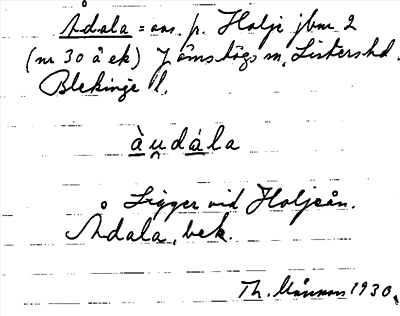 Ådala = ons. p. Holje jbnr 2
(nr 30 å ek) Jämshögs sn, Listers hd.
Blekinge l.
àu̯dála
Ligger vid Holjeån.
Ådala, bek.
Th. Månsson 1930.